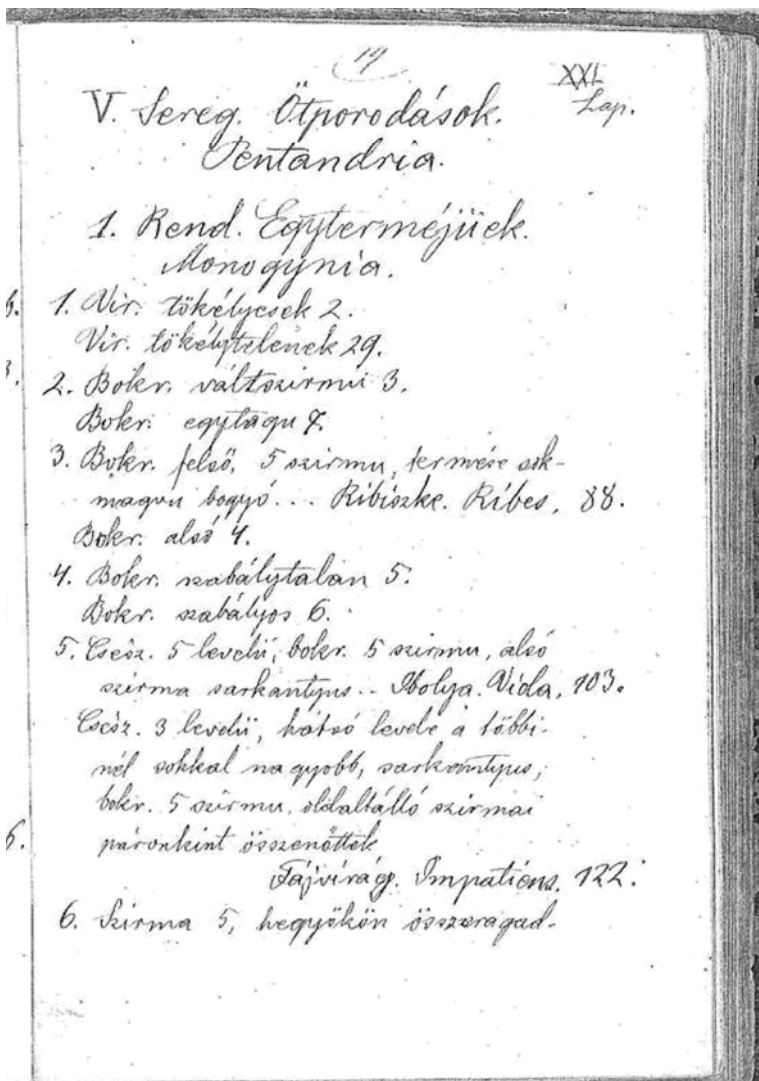 19
XXI.
Lap.
V. Sereg. Ötporodások.
Pentandria.
1. Rend. Egyterméjüek.
Monogynia.
1. Vir. tökélyesek 2.
Vir. tökélytelenek 29.
2. Bokr. váltszirmú 3.
Bokr. egytagu 7.
3. Bokr. felső, 5 szirmu, termése sok-
magvu bogyó... Ribiszke. Ribes, 88.
Bokr. alsó 4.
4. Bokr. szabálytalan 5.
Bokr. szabályos 6.
5. Csész. 5 levelü, bokr. 5 szirmu, alsó
szirma sarkantyus.. Ibolya. Viola, 103.
Csész. 3 levelü, hátsó levele a többi-
nél sokkal nagyobb, sarkantyus;
bokr. 5 szirmu, oldaltálló szirmai
páronkint összenőttek
Fájvirág. Impatiens. 122.
6. Szirma 5, hegyökön összeragad-